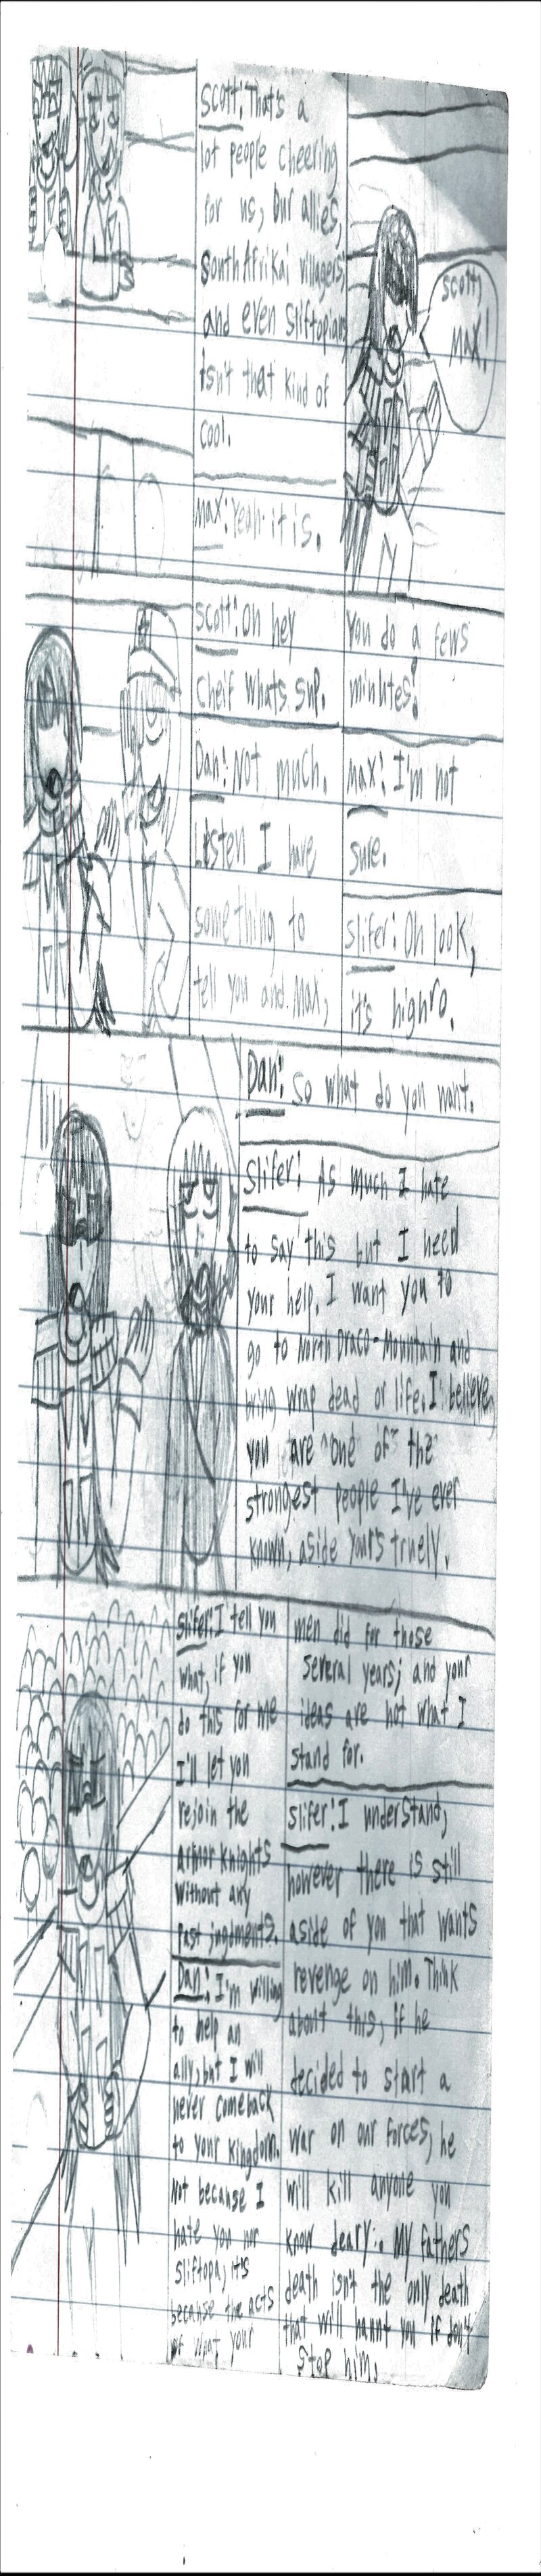 Scott: That's a
lot people cheering
for us, our allies,
South Afrikai villagers,
and even Sliftopians
isn't that kind of
cool.
Max: Yeah it is.
Scott,
MAX!
Scott: Oh hey
Cheif whats sup.
Dan: Not much.
Listen I have
something to
tell you and Max,
you do a fews
minutes?
Max: I'm not
sure.
Slifer: Oh look,
it's highro.
Dan: So what do you want.
Slifer: As much I hate
to say this but I need
your help. I want you to
go to North Draco-Mountain and
bring wrap dead or life. I believe,
you are one of the
strongest people I've ever
known, aside your's truely.
Slifer: I tell you
what, if you
do this for me
I'll let you
rejoin the
armor knights
without any
past jugdments.
Dan: I'm willing
to help an
ally, but I will
never comeback
to your kingdom.
Not because I
hate you nor
Sliftopa, it's
because the acts
of what your
men did for those
several years; and your
ideas are not what I
stand for.
Slifer: I understand,
however there is still
aside of you that wants
revenge on him. Think
about this, if he
decided to start a
war on our forces, he
will kill anyone you
know deary. My fathers
death isn't the only death
that will haunt you if don't
stop him.